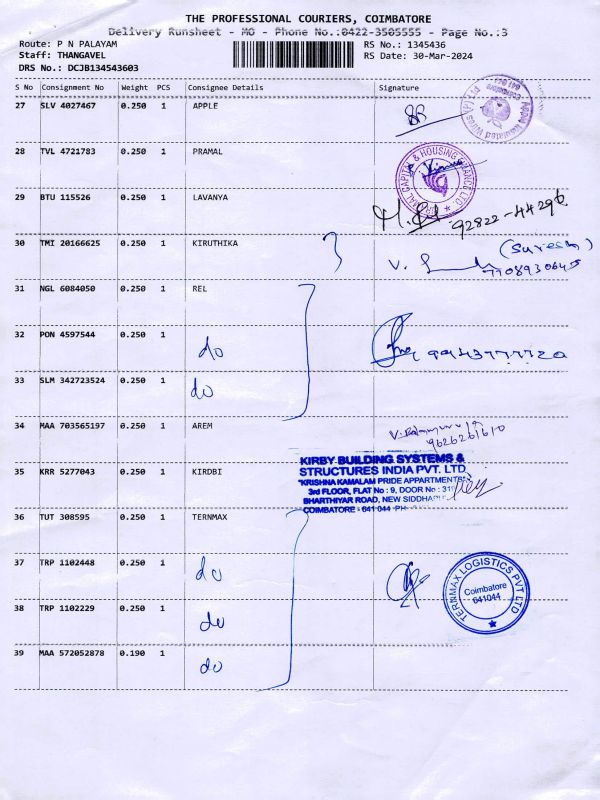 THE PROFESSIONAL COURIERS, COIMBATORE
Delivery Runsheet - MO - Phone No.:0422-3505555 - Page No.:3
Route: P N PALAYAM
Staff: THANGAVEL
DRS No.: DCJB134543603
RS No.: 1345436
RS Date: 30-Mar-2024
S No Consignment No Weight PCS Consignee Details Signature
27 SLV 4027467 0.250 1 APPLE
28 TVL 4721783 0.250 1 PRAMAL
29 BTU 115526 0.250 1 LAVANYA
92822-44296
30 TMI 20166625 0.250 1 KIRUTHIKA
(Suresh)
7708930645
31 NGL 6084050 0.250 1 REL
32 PON 4597544 0.250 1 do
33 SLM 342723524 0.250 1 do
34 MAA 703565197 0.250 1 AREM
9626261610
KIRBY BUILDING SYSTEMS &
STRUCTURES INDIA PVT. LTD
"KRISHNA KAMALAM PRIDE APPARTMENTS"
3rd FLOOR, FLAT No : 9, DOOR No : 319
BHARTHIYAR ROAD, NEW SIDDHAPU
COIMBATORE - 641 044 PH
35 KRR 5277043 0.250 1 KIRDBI
36 TUT 308595 0.250 1 TERNMAX
37 TRP 1102448 0.250 1 do
TERNMAX LOGISTICS PVT LTD
Coimbatore
641044
38 TRP 1102229 0.250 1 do
39 MAA 572052878 0.190 1 do